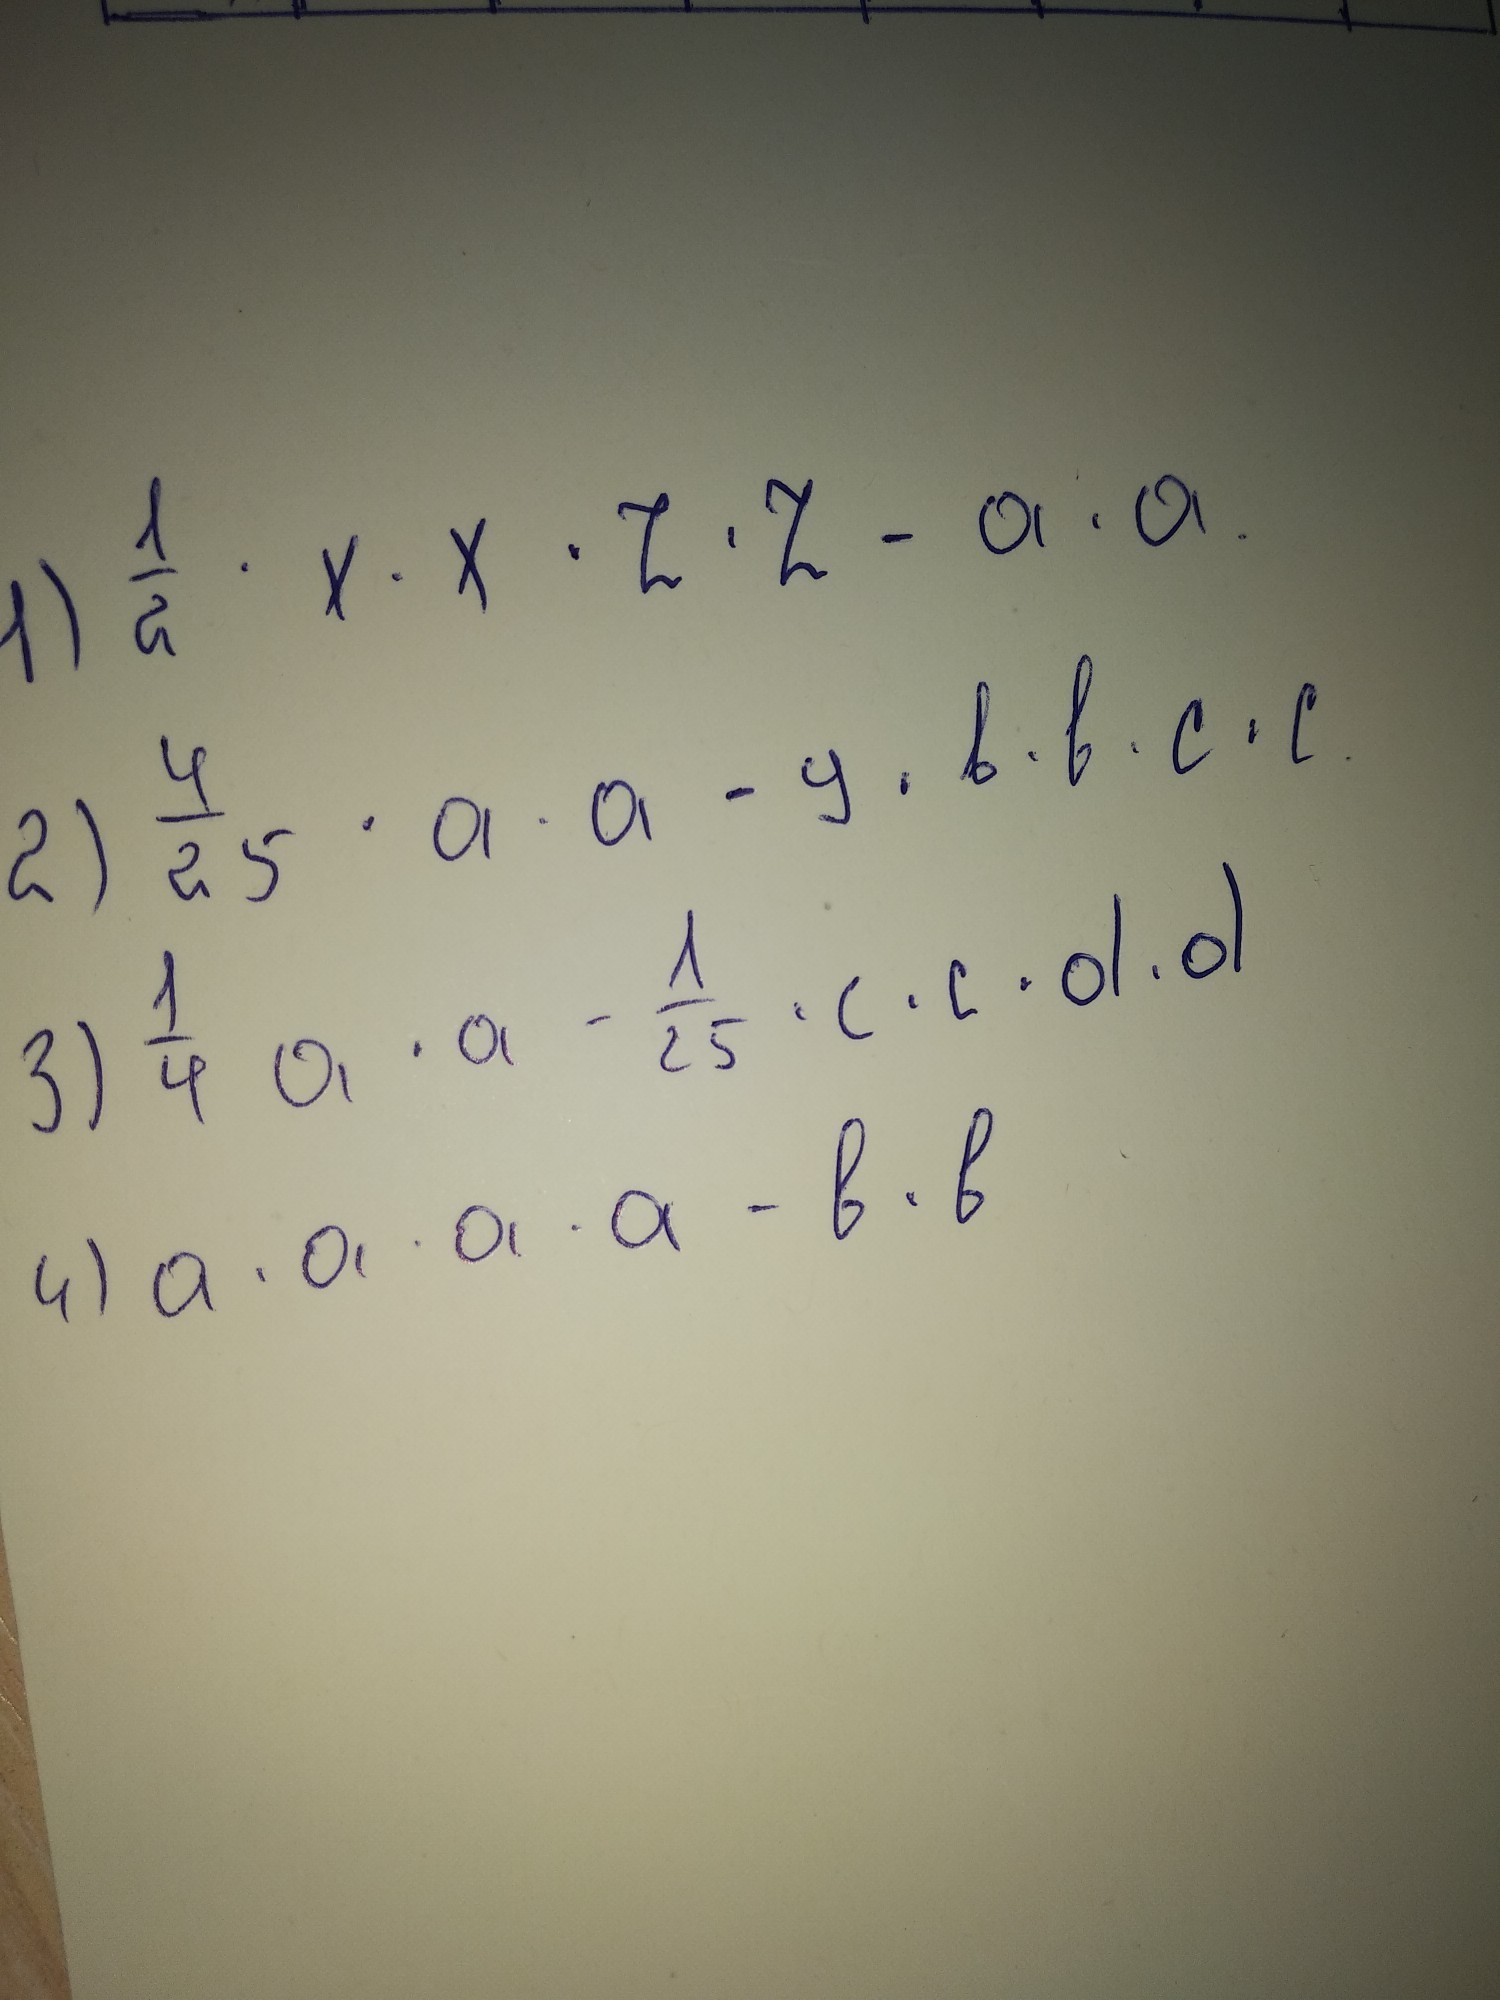 1) 1/2 · x · x · z · z - a · a.
2) 4/25 · a · a - 9 · b · b · c · c.
3) 1/4 a · a - 1/25 · c · c · d · d
4) a · a · a · a - b · b